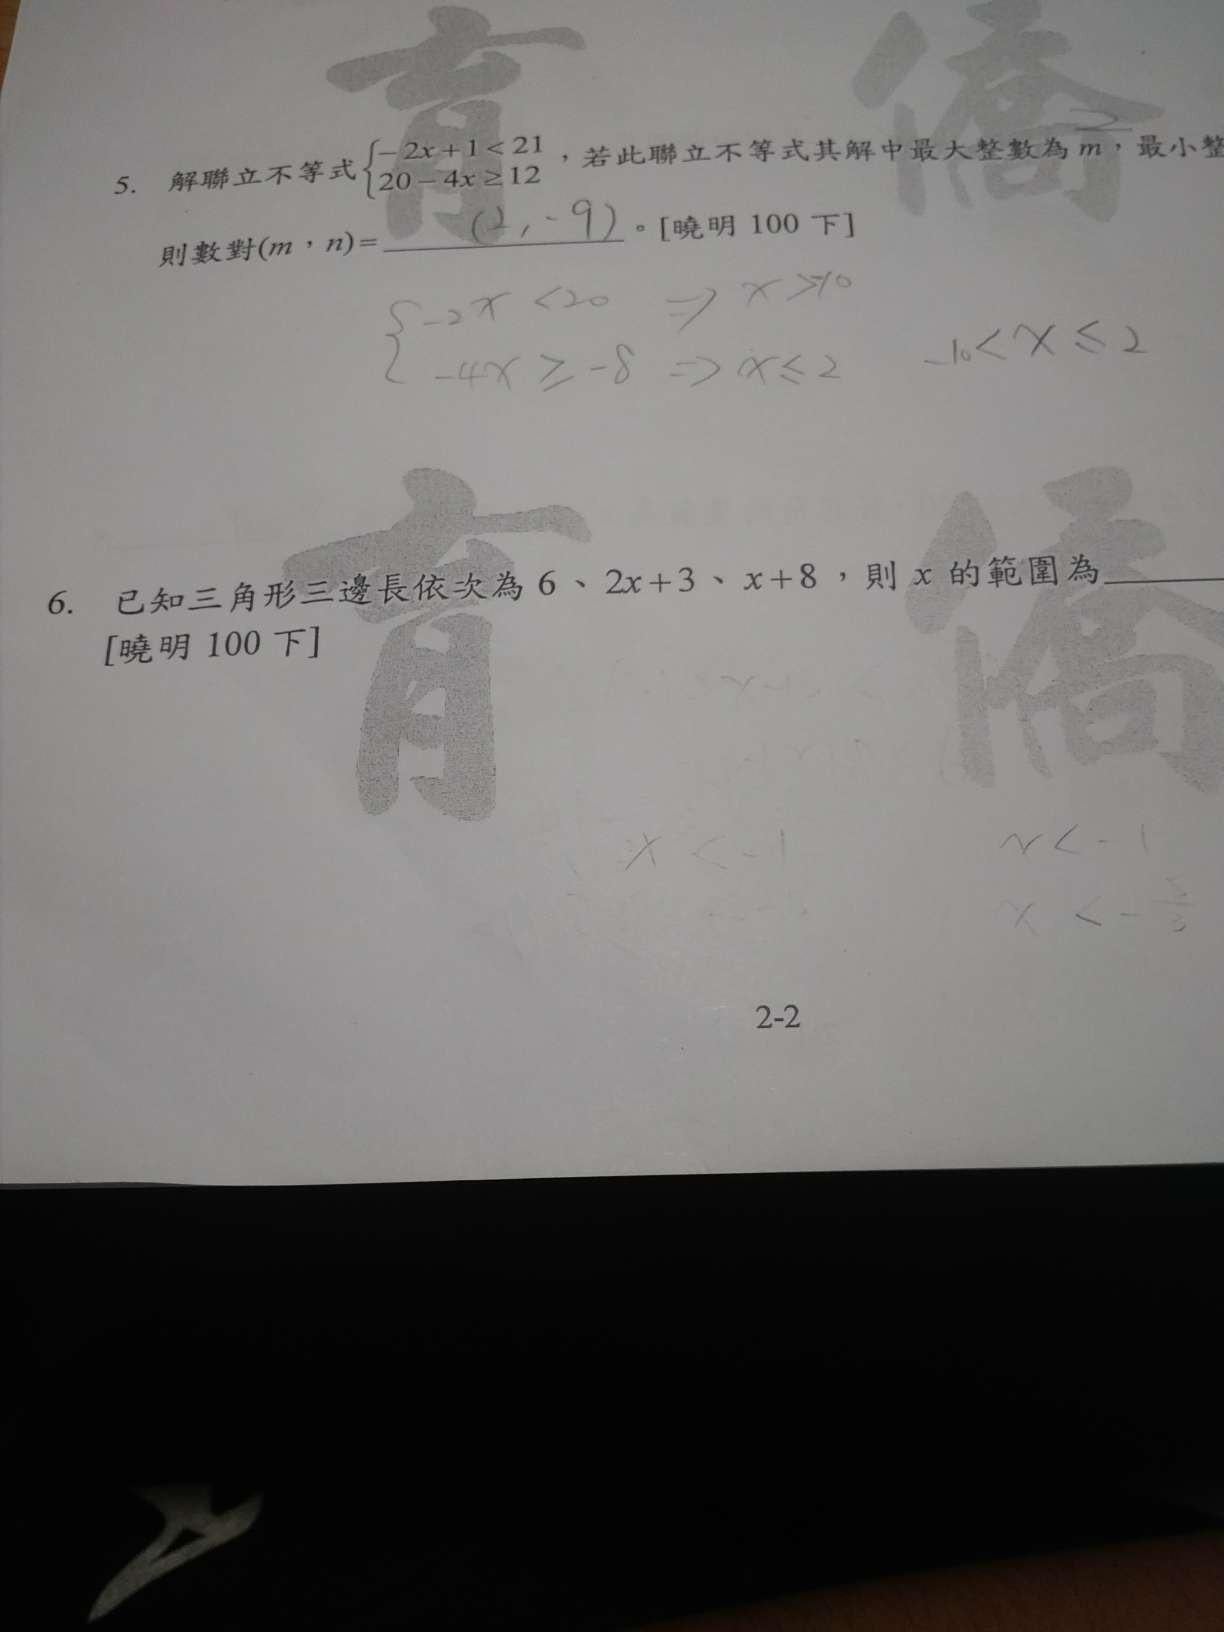 育 僑
5. 解聯立不等式{-2x+1<21
20-4x≥12 ,若此聯立不等式其解中最大整數為 m,最小整
2
則數對(m,n)= (2,-9) 。[曉明 100 下]
{-2x<20 => x>-10
-4x≥-8 => x≤2 -10<x≤2
育 僑
6. 已知三角形三邊長依次為 6、2x+3、x+8,則 x 的範圍為
[曉明 100 下]
2-2